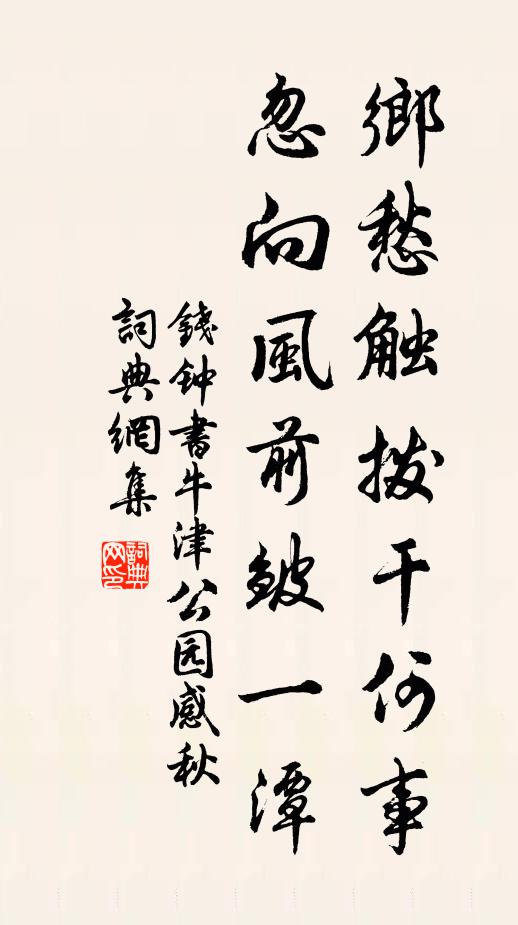 鄉愁触撥干何事
忽向風前皺一潭
錢钟書牛津公园感秋
詞典網集
詞典网印